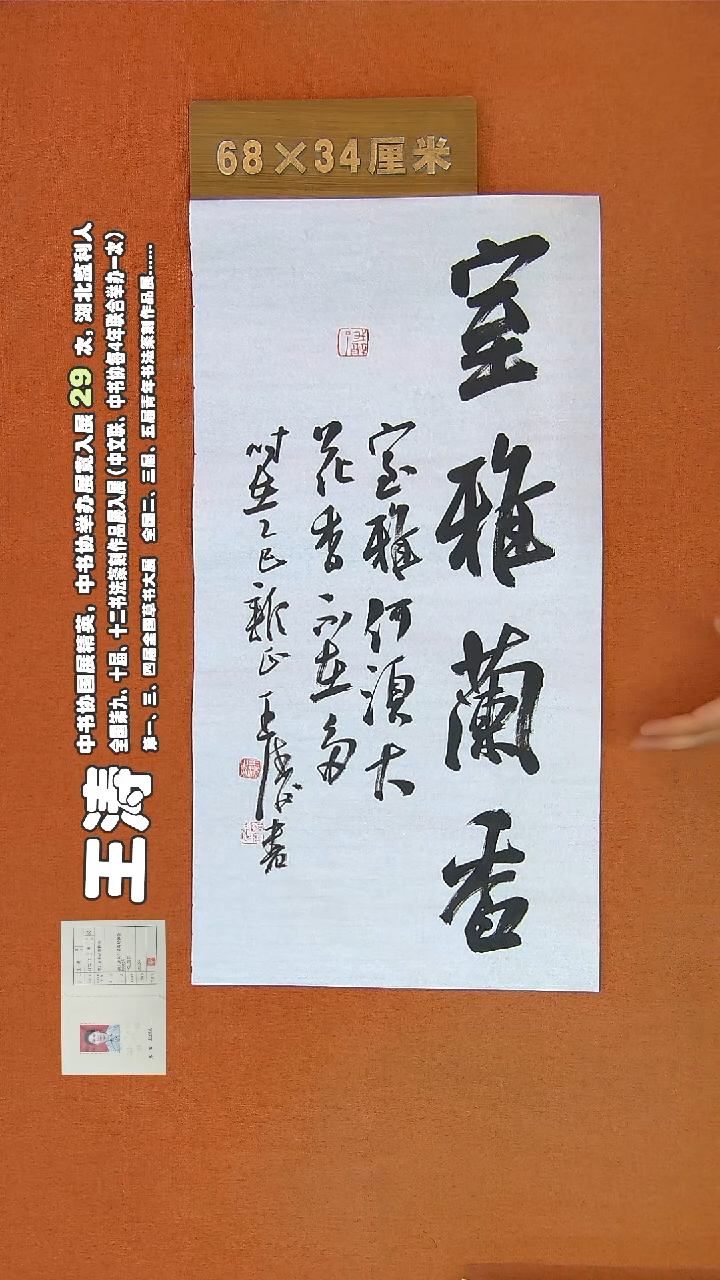 68×34厘米
室雅蘭香
室雅何須大
花香不在多
时在乙巳新正王涛书
王涛
中书协国展精英，中书协举办展赛入展29次，湖北监利人
全国第九、十届、十二书法篆刻作品展入展（中文联、中书协每4年联合举办一次）
第一、三、四届全国草书大展 全国二、三届、五届青年书法篆刻作品展……